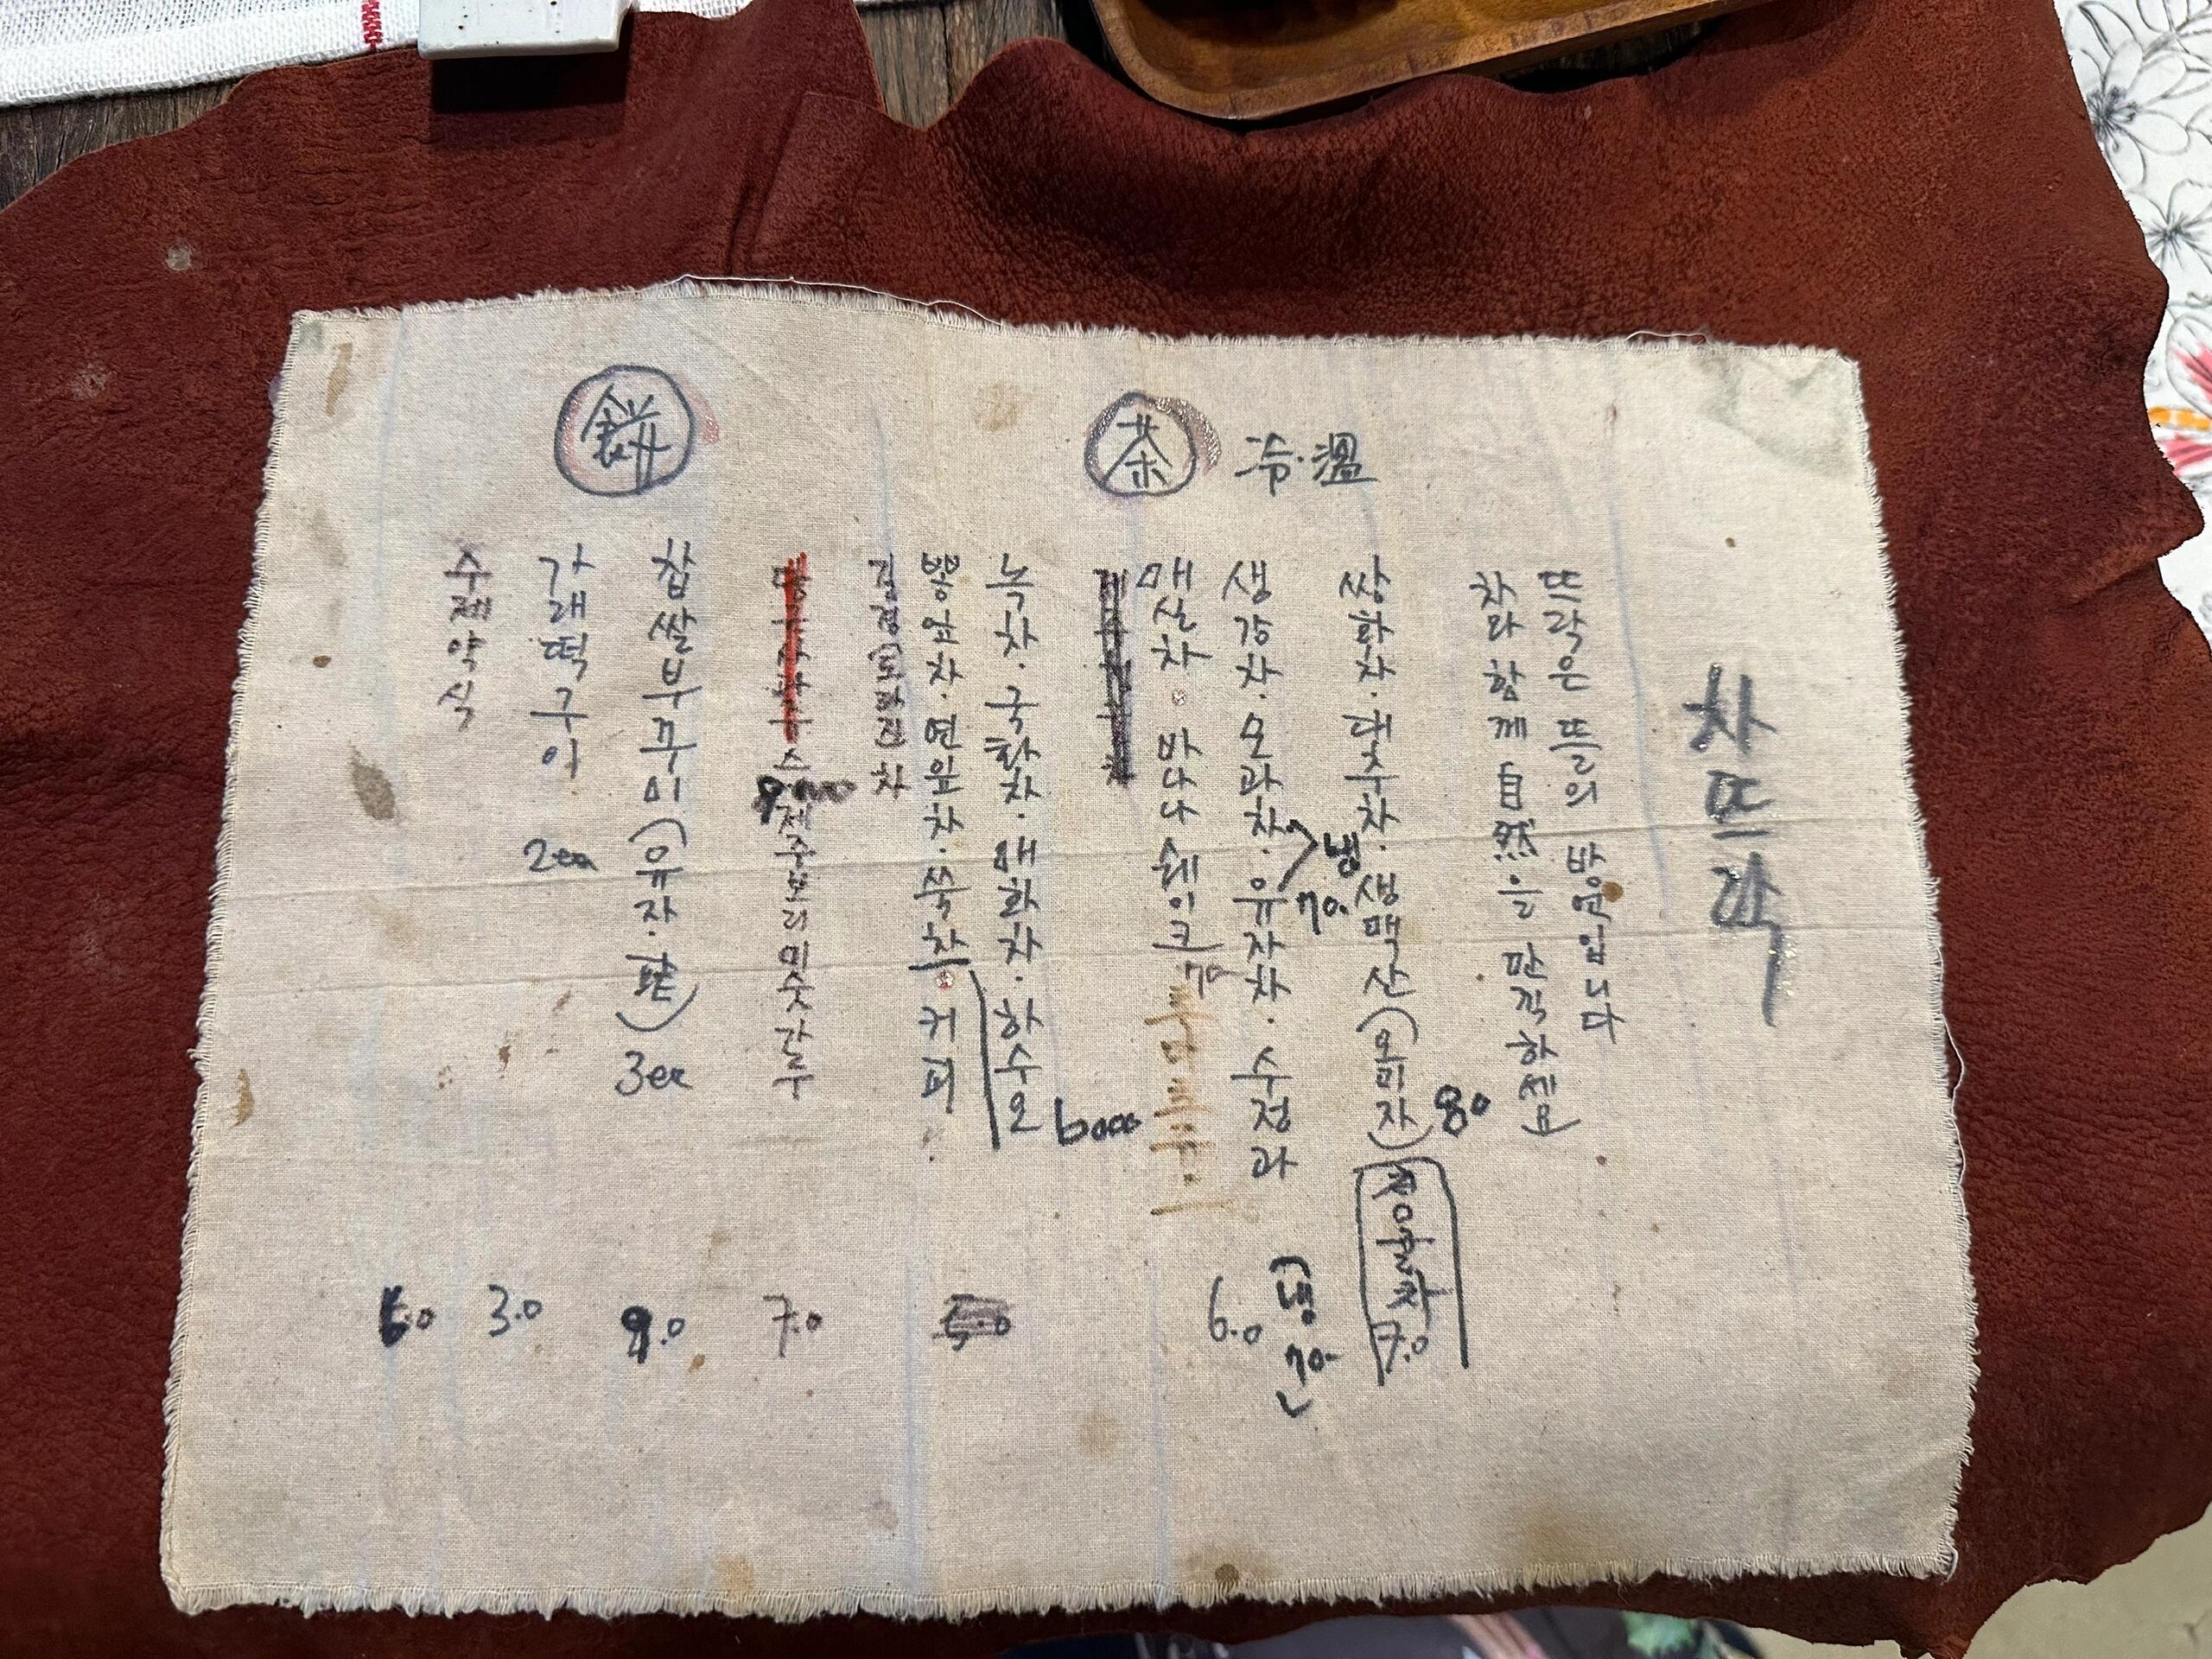 차뜨락
뜨락은 뜰의 방언입니다
차와 함께 自然을 만끽하세요
茶 冷·溫
쌍화차·대추차·생맥산(오미자) 80
칡꿀차 7.0
생강차·모과차·유자차·수정과
냉 70.
6.0 (냉 70.)
매실차·바나나쉐이크 70
녹차·국화차·매화차·하수오 6000
뽕잎차·연잎차·쑥차·커피
5.0
차
수제중보리미숫가루
7.0
餠
찹쌀부꾸미(유자·팥) 3ea
9.0
가래떡구이 2ea
3.0
수제약식
6.0